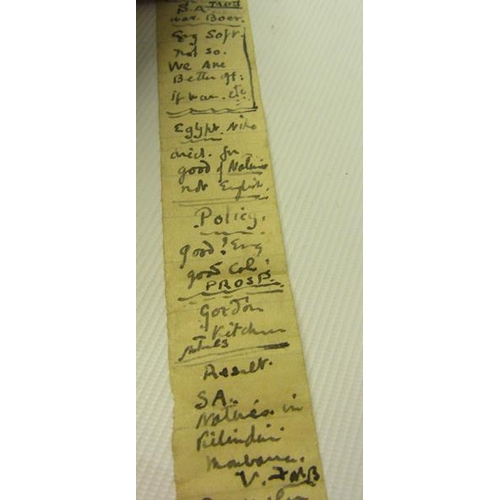 S.A.
war. Boer.
Eng Soft.
not so.
We Are
Better off.
if war. etc
Egypt. Nile
good of Natives
not English.
Policy.
good? Eng
good Col?
PROSP.
Gordon
Kitchen
Result.
SA.
Natives. in
Kilindini
Mombasa.
V.